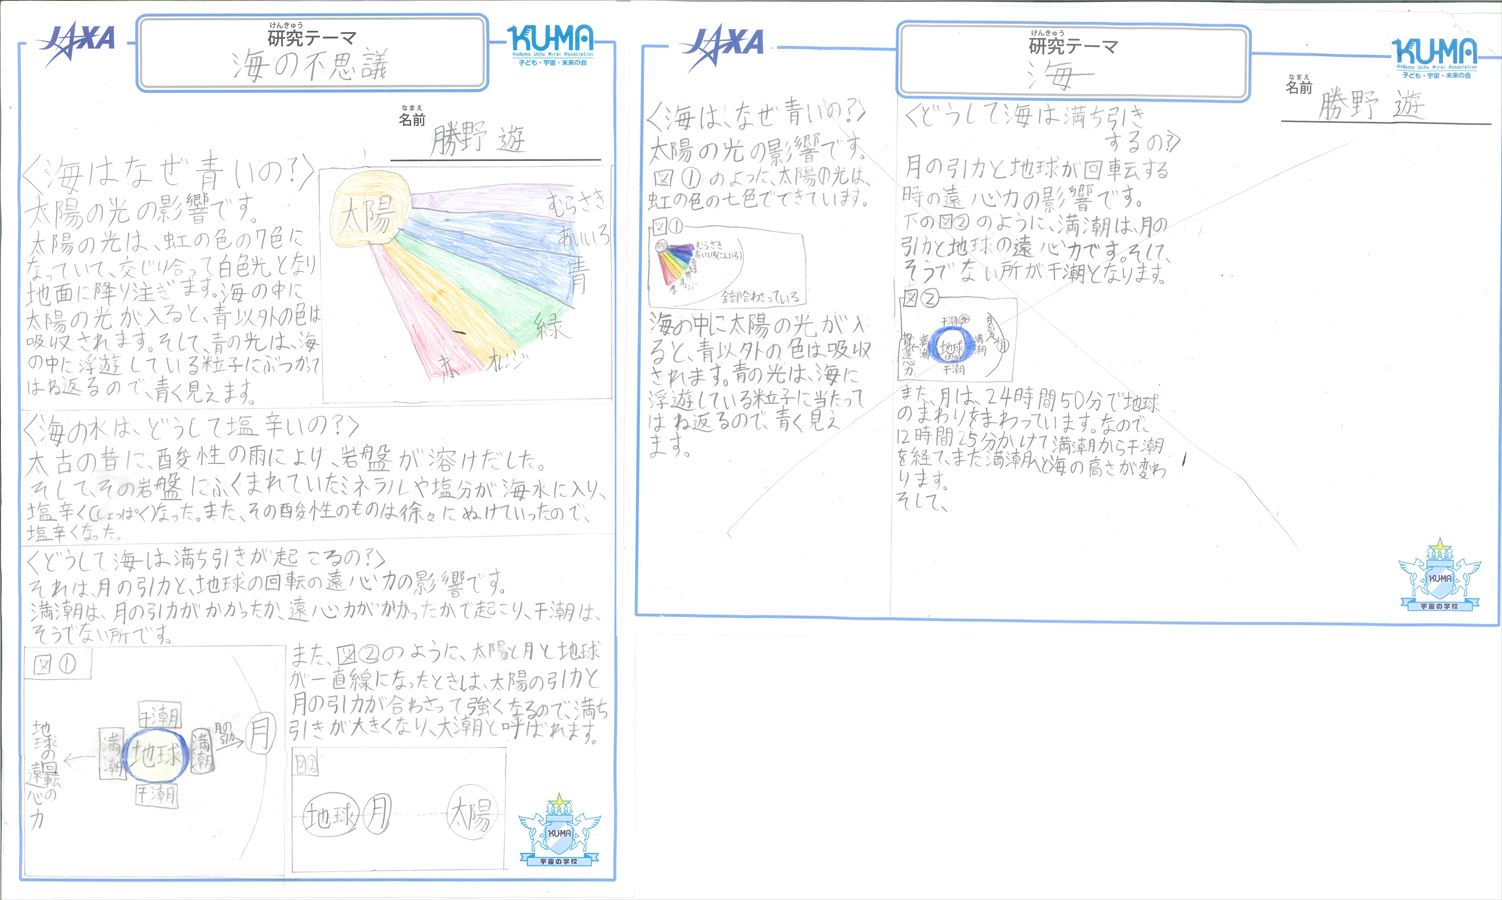 JAXA
けんきゅう
研究テーマ
海の不思議
KU-MA
Kodomo Uchu Mirai Association
子ども・宇宙・未来の会
なまえ
名前
勝野 遊
〈海はなぜ青いの?〉
太陽の光の影響です。
太陽の光は、虹の色の7色に
なっていて、交じり合って白色光となり
地面に降り注ぎます。海の中に
太陽の光が入ると、青以外の色は
吸収されます。そして、青の光は、海
の中に浮遊している粒子にぶつかって
はね返るので、青く見えます。
太陽
むらさき
あいいろ
青
緑
オレンジ
赤
〈海の水は、どうして塩辛いの?〉
太古の昔に、酸性の雨により、岩盤が溶けだした。
そして、その岩盤にふくまれていたミネラルや塩分が海水に入り、
塩辛く(しょっぱく)なった。また、その酸性のものは徐々にぬけていったので、
塩辛くなった。
〈どうして海は満ち引きが起こるの?〉
それは、月の引力と、地球の回転の遠心力の影響です。
満潮は、月の引力がかかったか、遠心力がかかったかで起こり、干潮は、
そうでない所です。
図①
干潮
満潮
地球
満潮
月の引力
月
干潮
地球の回転の遠心の力
また、図②のように、太陽と月と地球
が一直線になったときは、太陽の引力と
月の引力が合わさって強くなるので、満ち
引きが大きくなり、大潮と呼ばれます。
図②
地球
月
太陽
KU-MA
宇宙の学校
JAXA
けんきゅう
研究テーマ
海
KU-MA
Kodomo Uchu Mirai Association
子ども・宇宙・未来の会
なまえ
名前
勝野 遊
〈海は、なぜ青いの?〉
太陽の光の影響です。
図①のように、太陽の光は、
虹の色の七色でできています。
図①
むらさき
あいいろ(こんいろ)
全部合わさっている
海の中に太陽の光が入
ると、青以外の色は吸収
されます。青の光は、海に
浮遊している粒子に当たって
はね返るので、青く見え
ます。
〈どうして海は満ち引き
するの?〉
月の引力と地球が回転する
時の遠心力の影響です。
下の図②のように、満潮は、月の
引力と地球の遠心力です。そして、
そうでない所が干潮となります。
図②
干潮
満潮
地球
満潮
月
干潮
また、月は、24時間50分で地球
のまわりをまわっています。なので、
12時間25分かけて満潮から干潮
を経て、また満潮へと海の高さが変わ
ります。
そして、
KUMA
宇宙の学校